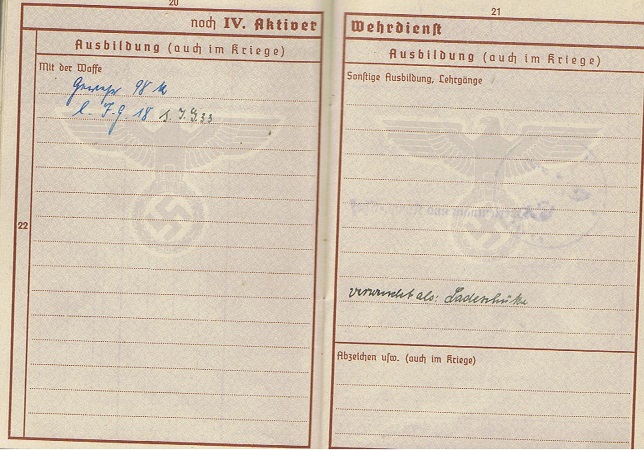 20
noch IV. Aktiver
Ausbildung (auch im Kriege)
Mit der Waffe
Gewehr 98 k
l. I. G. 18 s. I. G. 33
22
21
Wehrdienst
Ausbildung (auch im Kriege)
Sonstige Ausbildung, Lehrgänge
verwendet als: Ladeschütze
Abzeichen usw. (auch im Kriege)